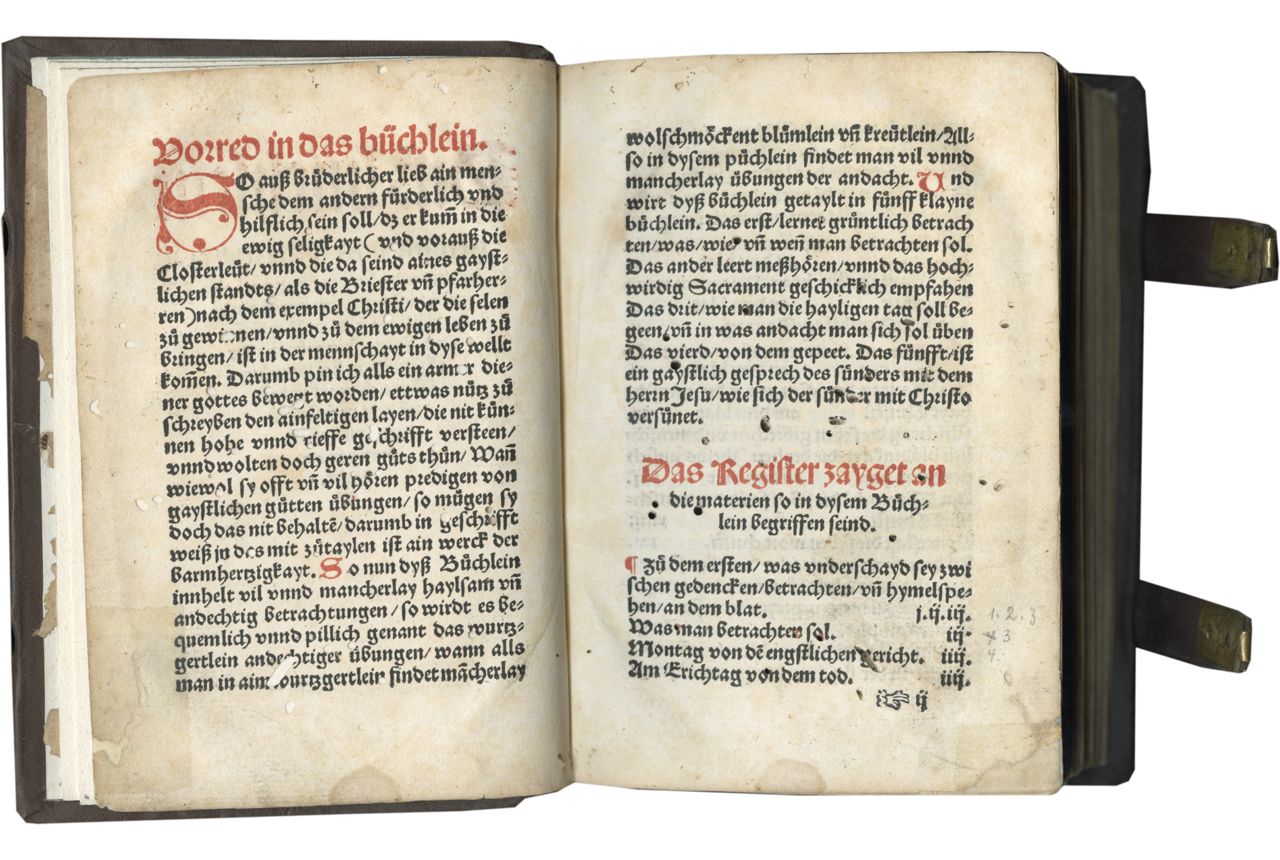 Vorred in das büchlein.
SO auß brüderlicher lieb ain men⸗
sche dem andern fürderlich vnd
hilflich sein soll/dz er kum̄ in die
ewig seligkayt ( vnd vorauß die
Closterleüt/vnnd die da seind aines gayst⸗
lichen standts/als die Briester vn̄ pfarher⸗
ren)nach dem exempel Christi/der die selen
zů gewinnen/vnnd zů dem ewigen leben zů
bringen/ist in der mennschayt in dyse wellt
kom̄en. Darumb pin ich alls ein armer die⸗
ner gottes bewegt worden/ettwas nütz zů
schreyben den ainfeltigen layen/die nit kün⸗
nen hohe vnnd tieffe geschrifft versteen/
vnnd wolten doch geren gůts thůn/Wan̄
wiewol sy offt vn̄ vil hören predigen von
gaystlichen gůtten übungen/so mügen sy
doch das nit behaltē/darumb in geschrifft
weiß jn das mit zůtaylen ist ain werck der
barmhertzigkayt. So nun dyß Büchlein
innhelt vil vnnd mancherlay haylsam vn̄
andechtig betrachtungen/so wirdt es be⸗
quemlich vnnd pillich genant das wurtz⸗
gertlein andechtiger übungen/wann alls
man in aim wurtzgertlein findet mācherlay
wolschmöckent blümlein vn̄ kreütlein/All⸗
so in dysem püchlein findet man vil vnnd
mancherlay übungen der andacht. Vnd
wirt dyß büchlein getaylt in fünff klayne
büchlein. Das erst/lernet grüntlich betrach
ten/was/wie/vn̄ wen̄ man betrachten sol.
Das ander leert meßhören/vnnd das hoch⸗
wirdig Sacrament geschicklich empfahen
Das drit/wie man die hayligen tag soll be⸗
geen/vn̄ in was andacht man sich sol üben
Das vierd/von dem gepeet. Das fünfft/ist
ein gaystlich gesprech des sünders mit dem
herrn Jesu/wie sich der sünder mit Christo
versünet.
Das Register zayget an
die materien so in dysem Büch⸗
lein begriffen seind.
¶ Zů dem ersten/was vnderschayd sey zwi
schen gedencken/betrachten/vn̄ hymelspe⸗
hen/an dem blat. j.ij.iij. 1.2.3
Was man betrachten sol. iij. 3
Montag von dē engstlichen gericht. iiij. 4.
Am Erichtag von dem tod. iiij.
☞ ij